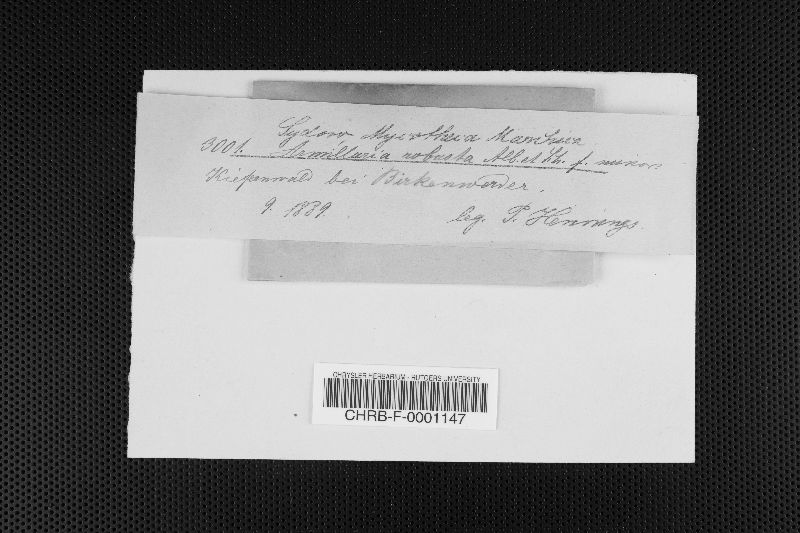 Sydow Mycotheca Marchica
3001. Armillaria robusta Alb et Sch. f. minor
Kiefernwald bei Birkenwerder.
9. 1889. leg. P. Hennings.
CHRYSLER HERBARIUM - RUTGERS UNIVERSITY
CHRB-F-0001147